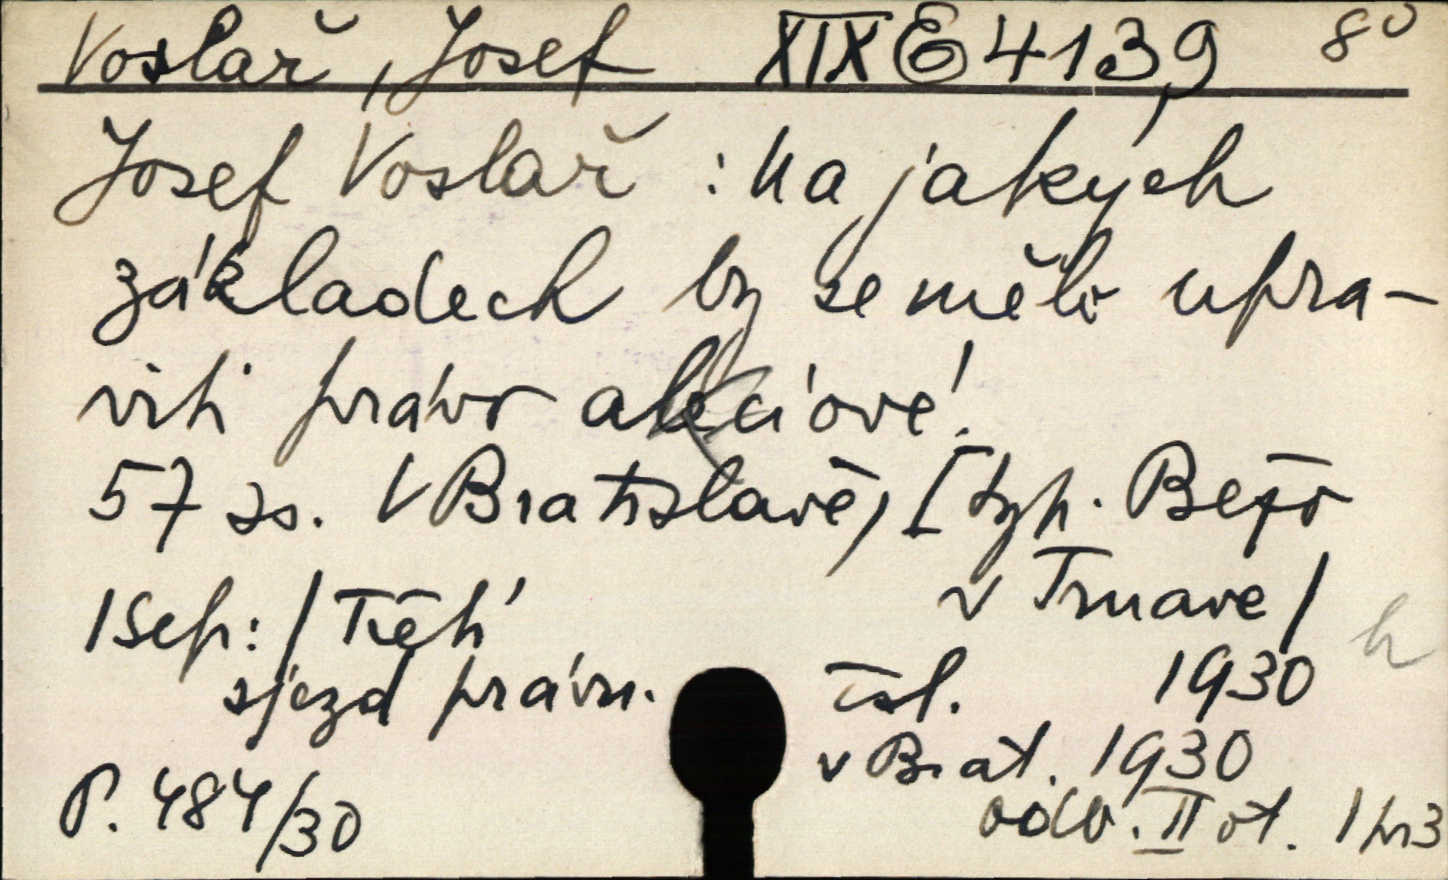 Voslař, Josef XIX E 4139 8°
Josef Voslař : Na jakých
základech by se mělo upra-
viti právo akciové!
57 ss. V Bratislavě, [typ. Bežo
v Trnave/
/Sep:/ Třetí
sjezd právn. čsl. 1930
v Brat. 1930
P. 484/30 odb. II ot. 1